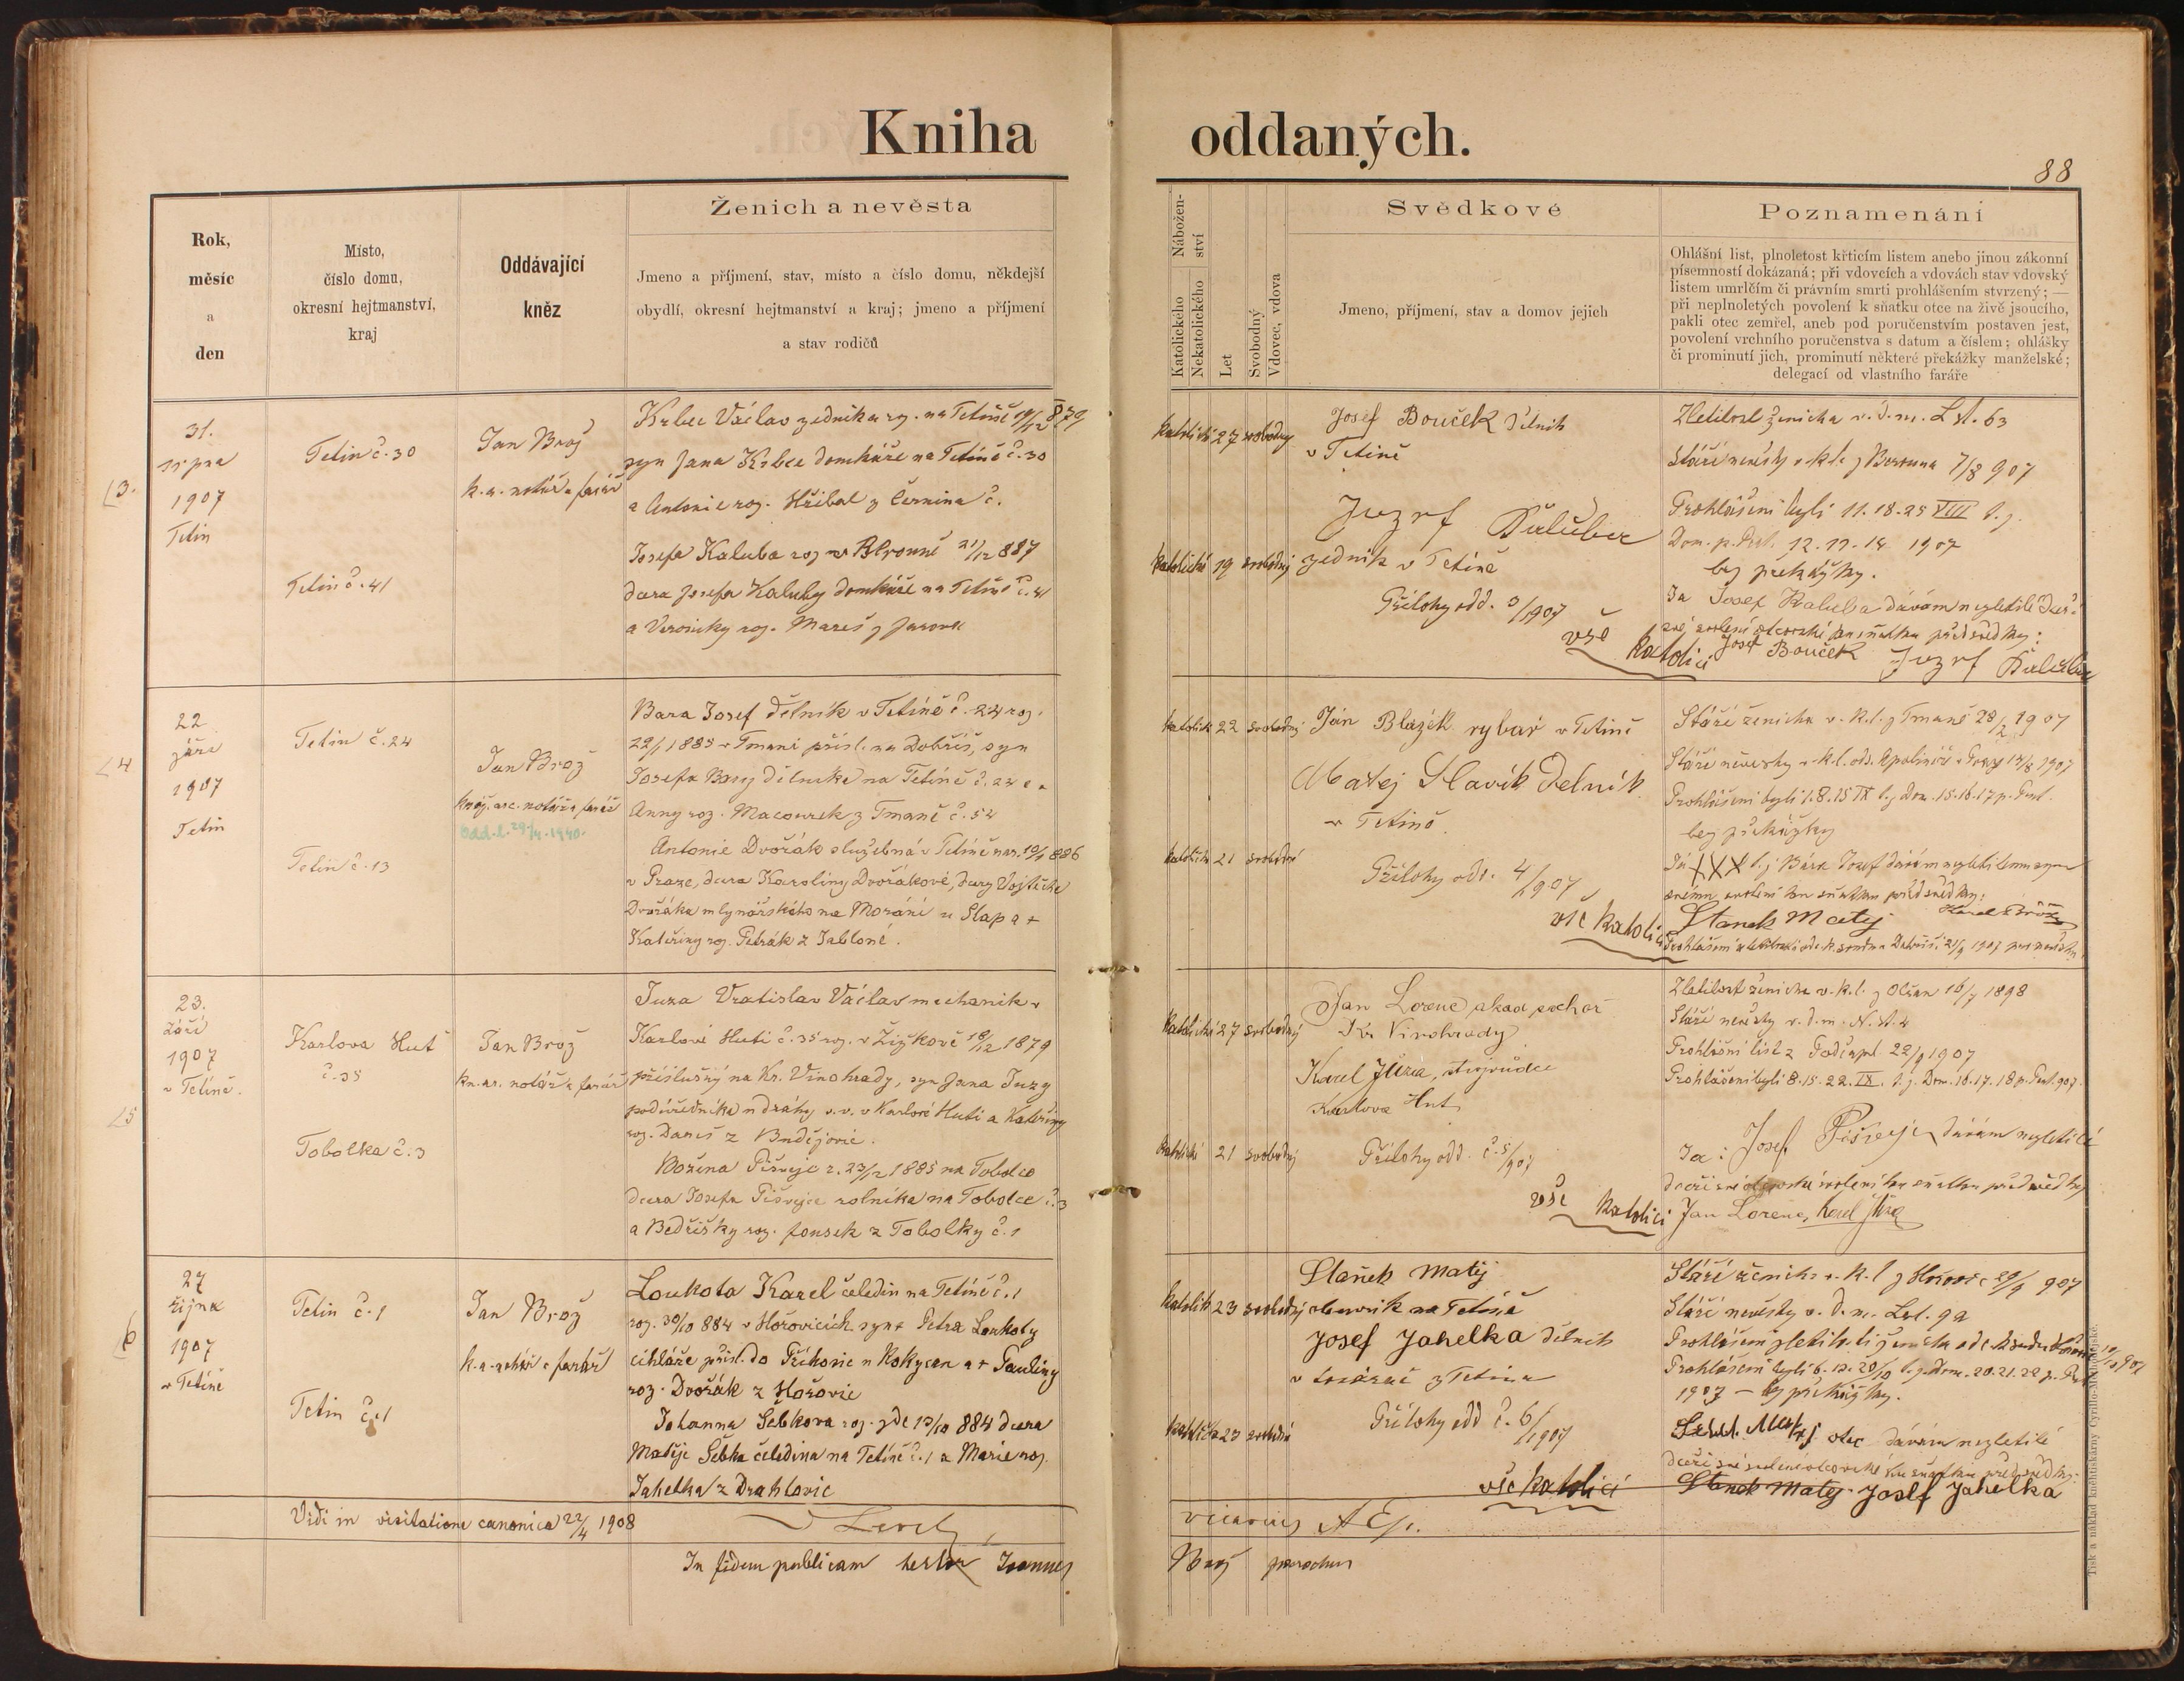 Kniha oddaných.
88
Rok, měsíc a den
Místo, číslo domu, okresní hejtmanství, kraj
Oddávající kněz
Ženich a nevěsta
Jmeno a příjmení, stav, místo a číslo domu, někdejší
obydlí, okresní hejtmanství a kraj; jmeno a příjmení
a stav rodičů
Nábožen-
ství
Katolického
Nekatolického
Let
Svobodný
Vdovec, vdova
Svědkové
Jmeno, příjmení, stav a domov jejich
Poznamenání
Ohlášní list, plnoletost křticím listem anebo jinou zákonní
písemností dokázaná; při vdovcích a vdovách stav vdovský
listem umrlčím či právním smrti prohlášením stvrzený; —
při neplnoletých povolení k sňatku otce na živě jsoucího,
pakli otec zemřel, aneb pod poručenstvím postaven jest,
povolení vrchního poručenstva s datum a číslem; ohlášky
či prominutí jich, prominutí některé překážky manželské;
delegací od vlastního faráře
31.
srpna
1907
Tetín
Tetín č. 30
Tetín č. 41
Jan Brož
k. a. notář a farář
Krbec Václav zedník a roz. na Tetíně
syn Jana Krbce domkáře na Tetíně č. 30
a Antonie roz. Hřibal z Černína č.
Josefa Kaluba roz v Berouně 21/12 887
dcera Josefa Kaluby domkáře na Tetíně č. 41
a Veroniky roz. Mareš z
katolický 27 svobodný
katolická 19 svobodný
Josef Bouček dělník
v Tetíně
Jozef Kaluba
zedník v Tetíně
Přílohy odd. 3/1907
vše katolíci
Zletilost ženicha v. d. m. L st. 63
Stáří nevěsty v. k. l. z Berouna 7/8 907
Prohlášeni byli 11. 18. 25 VIII t. j.
Dom. p. Pent. 12. 13. 14 1907
bez překážky.
Já Josef Kaluba dávám nezletilé dceři
své svolení otcovské ku sňatku před svědky:
Josef Bouček Jozef Kaluba
22
září
1907
Tetín
Tetín č. 24
Tetín č. 13
Jan Brož
kněz. arc. notář a farář
odd. l. 29/4. 1940.
Bara Josef dělník v Tetíně č. 24 roz.
22/1 1885 v Tmani přísl. na Dobříš, syn
Josefa Bary dělníka na Tetíně č. 24 a
Anny roz. Macourek z Tmaně č. 54
Antonie Dvořák služebná v Tetíně nar. 10/1 886
v Praze, dcera Karoliny Dvořákové, dcery Vojtěcha
Dvořáka mlynářského na Moráni u Slap a +
Kateřiny roz. Petrák z Jablonné.
katolík 22 svobodný
katolička 21 svobodná
Ján Blažek rybář v Tetíně
Matej Slavík Delník
v Tetíně.
Přílohy odd. 4/1907
vše katolíci
Stáří ženicha v. k. l. z Tmaně 28/2 1907
Stáří nevěsty v. k. l. od s. Apolináře v Praze 14/8 1907
Prohlášeni byli 1. 8. 15 IX t. j. Dom. 15. 16. 17 p. Pent.
bez překážky
Já XXX t. j. Bára Josef dávám nezletilému synu
svému svolení ku sňatku před svědky:
Stanek Matej
23.
Září
1907
v Tetíně.
Karlova Huť
č. 35
Tobolka č. 3
Jan Brož
kn. ar. notář a farář
Juza Vratislav Václav mechanik v
Karlově Huti č. 35 roz. v Žižkově 18/12 1879
příslušný na Kr. Vinohrady, syn Jana Juzy
podúředníka u dráhy v. v. v Karlově Huti a Kateřiny
roz. Dareš z Budějovic.
Božena Pišvejc r. 23/12 1885 na Tobolce
dcera Josefa Pišvejce rolníka na Tobolce č. 3
a Bedřišky roz. Fousek z Tobolky č. 1
katolický 27 svobodný
katolická 21 svobodný
Jan Lorenc akad sochař
Kr. Vinohrady
Karel Jůza, strojvůdce
Karlova Huť
Přílohy odd. č. 5/907
vše katolíci
Zletilost ženicha v. k. l. z Olšan 16/7 1898
Stáří nevěsty v. d. m. N. st. 4
Prohlášní list z
Prohlášeni byli 8. 15. 22. IX. t. j. Dom. 16. 17. 18 p. Pent. 907.
Ja: Josef Pišvejc dávám nezletilé
dceři své otcovské svolení ku sňatku před svědky
Jan Lorenc, Karel Jůza
27
října
1907
v Tetíně
Tetín č. 1
Tetín č. 1
Jan Brož
k. a. notář a farář
Loukota Karel čeledín na Tetíně č. 1
roz. 30/10 884 v Hořovicích syn + Petra Loukoty
cihláře přísl. do Příkosic u Rokycan a + Pauliny
roz. Dvořák z Hořovic
Johanna Šebkova roz. zde 13/10 884 dcera
Matěje Šebka čeledína na Tetíně č. 1 a Marie roz.
Jahelka z Drahlovic
katolík 23 svobodný
katolička 23 svobodná
Staněk Matěj
obuvník na Tetíně
Josef Jahelka dělník
z Tetína
Přílohy odd č. 6/1907
vše katolíci
Stáří ženicha v. k. l z Hořovic 29/9 907
Stáří nevěsty v. d. m. L st. 92
Prohlášeni byli 6. 13. 20/10 t. j. Dom. 20. 21. 22 p. Pent
1907 – bez překážky.
otec dávám nezletilé
dceři své svolení otcovské ku sňatku před svědky:
Stanek Matej Josef Jahelka
Vidi in visitatione canonica 22/4 1908
vicarius A. Ep.
In fidem publicam testor Joannes
Brož parochus
Tisk a náklad knihtiskárny Cyrillo-Methodějské.